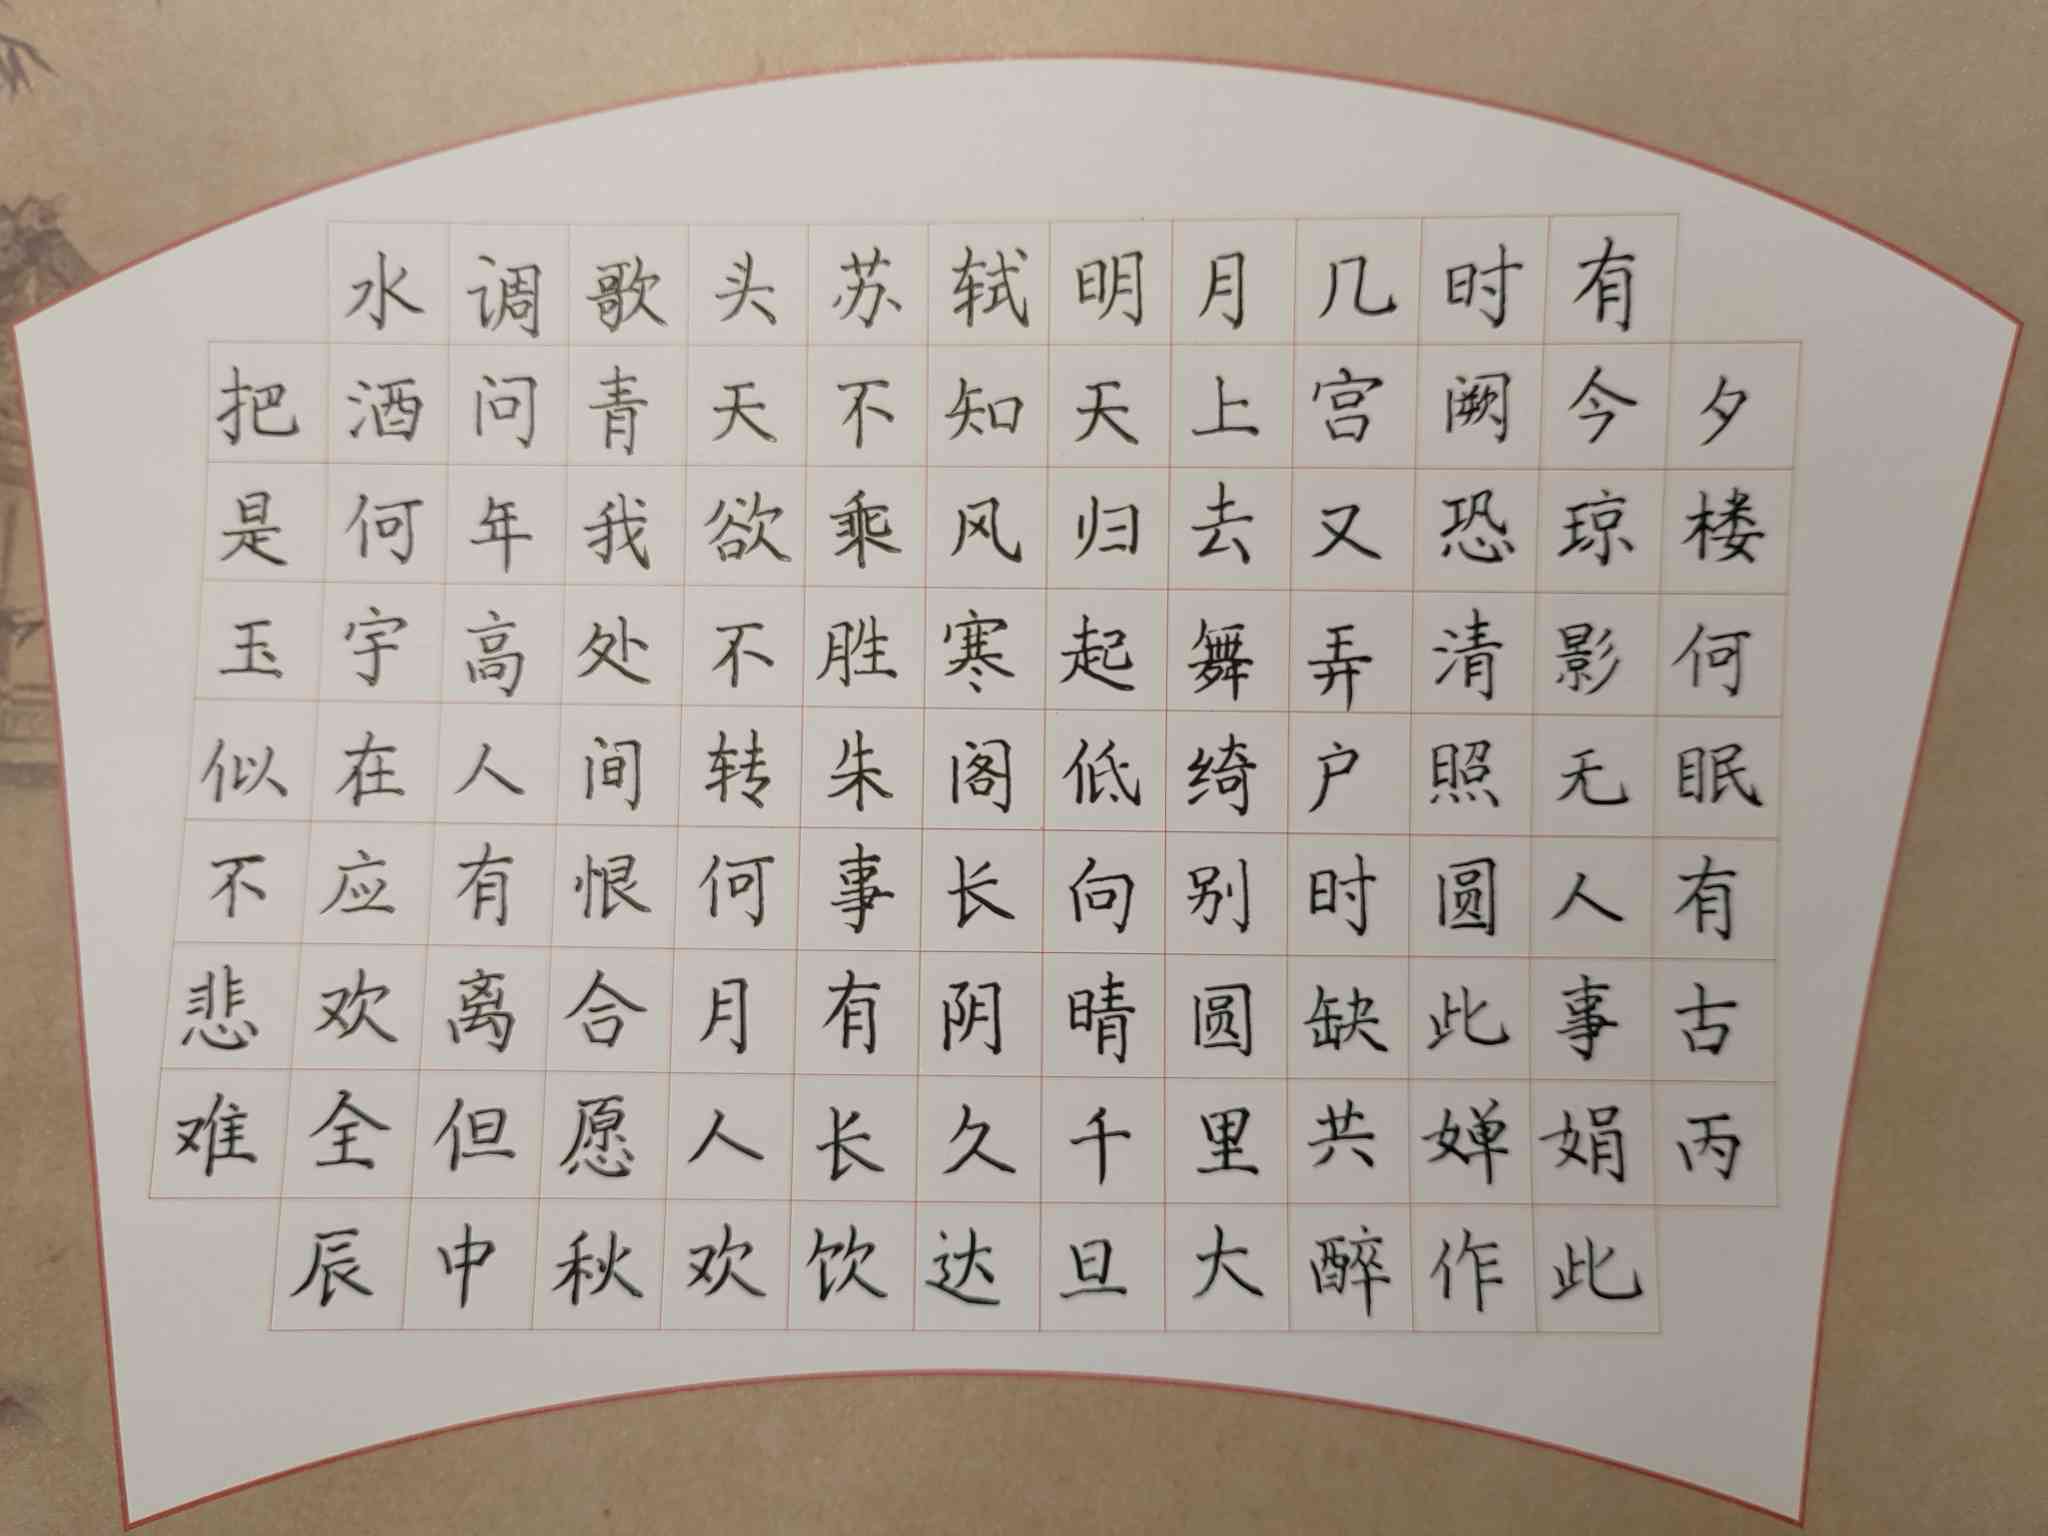 水调歌头苏轼明月几时有
把酒问青天不知天上宫阙今夕
是何年我欲乘风归去又恐琼楼
玉宇高处不胜寒起舞弄清影何
似在人间转朱阁低绮户照无眠
不应有恨何事长向别时圆人有
悲欢离合月有阴晴圆缺此事古
难全但愿人长久千里共婵娟丙
辰中秋欢饮达旦大醉作此